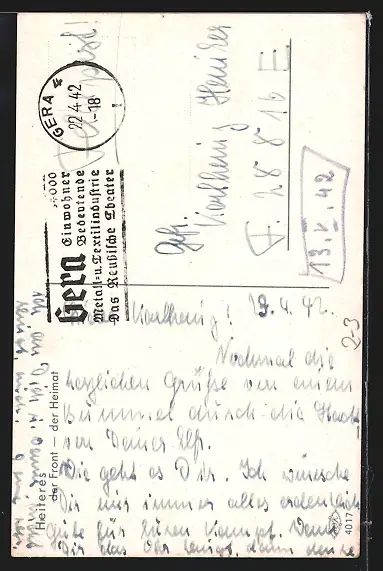 Feldpost!
GERA 4
22.4.42
-18
000
Einwohner
Gera Bedeutende
Metall- u. Textilindustrie
Das Reußische Theater
Gefr.
Karlheinz
F. 28 816 E
13. V. 42
Karlheinz! 19.4.42.
Nochmal die
herzlichen Grüße von einem
Bummel durch die Stadt
von Deiner Elf.
Wie geht es Dir. Ich wünsche
Dir nur immer alles erdenklich
Gute für Euren Kampf. Wenn
Dir das Ohr klingt, dann denke
ich an Dich
Heiteres
der Front — der Heimat
4017
2-3